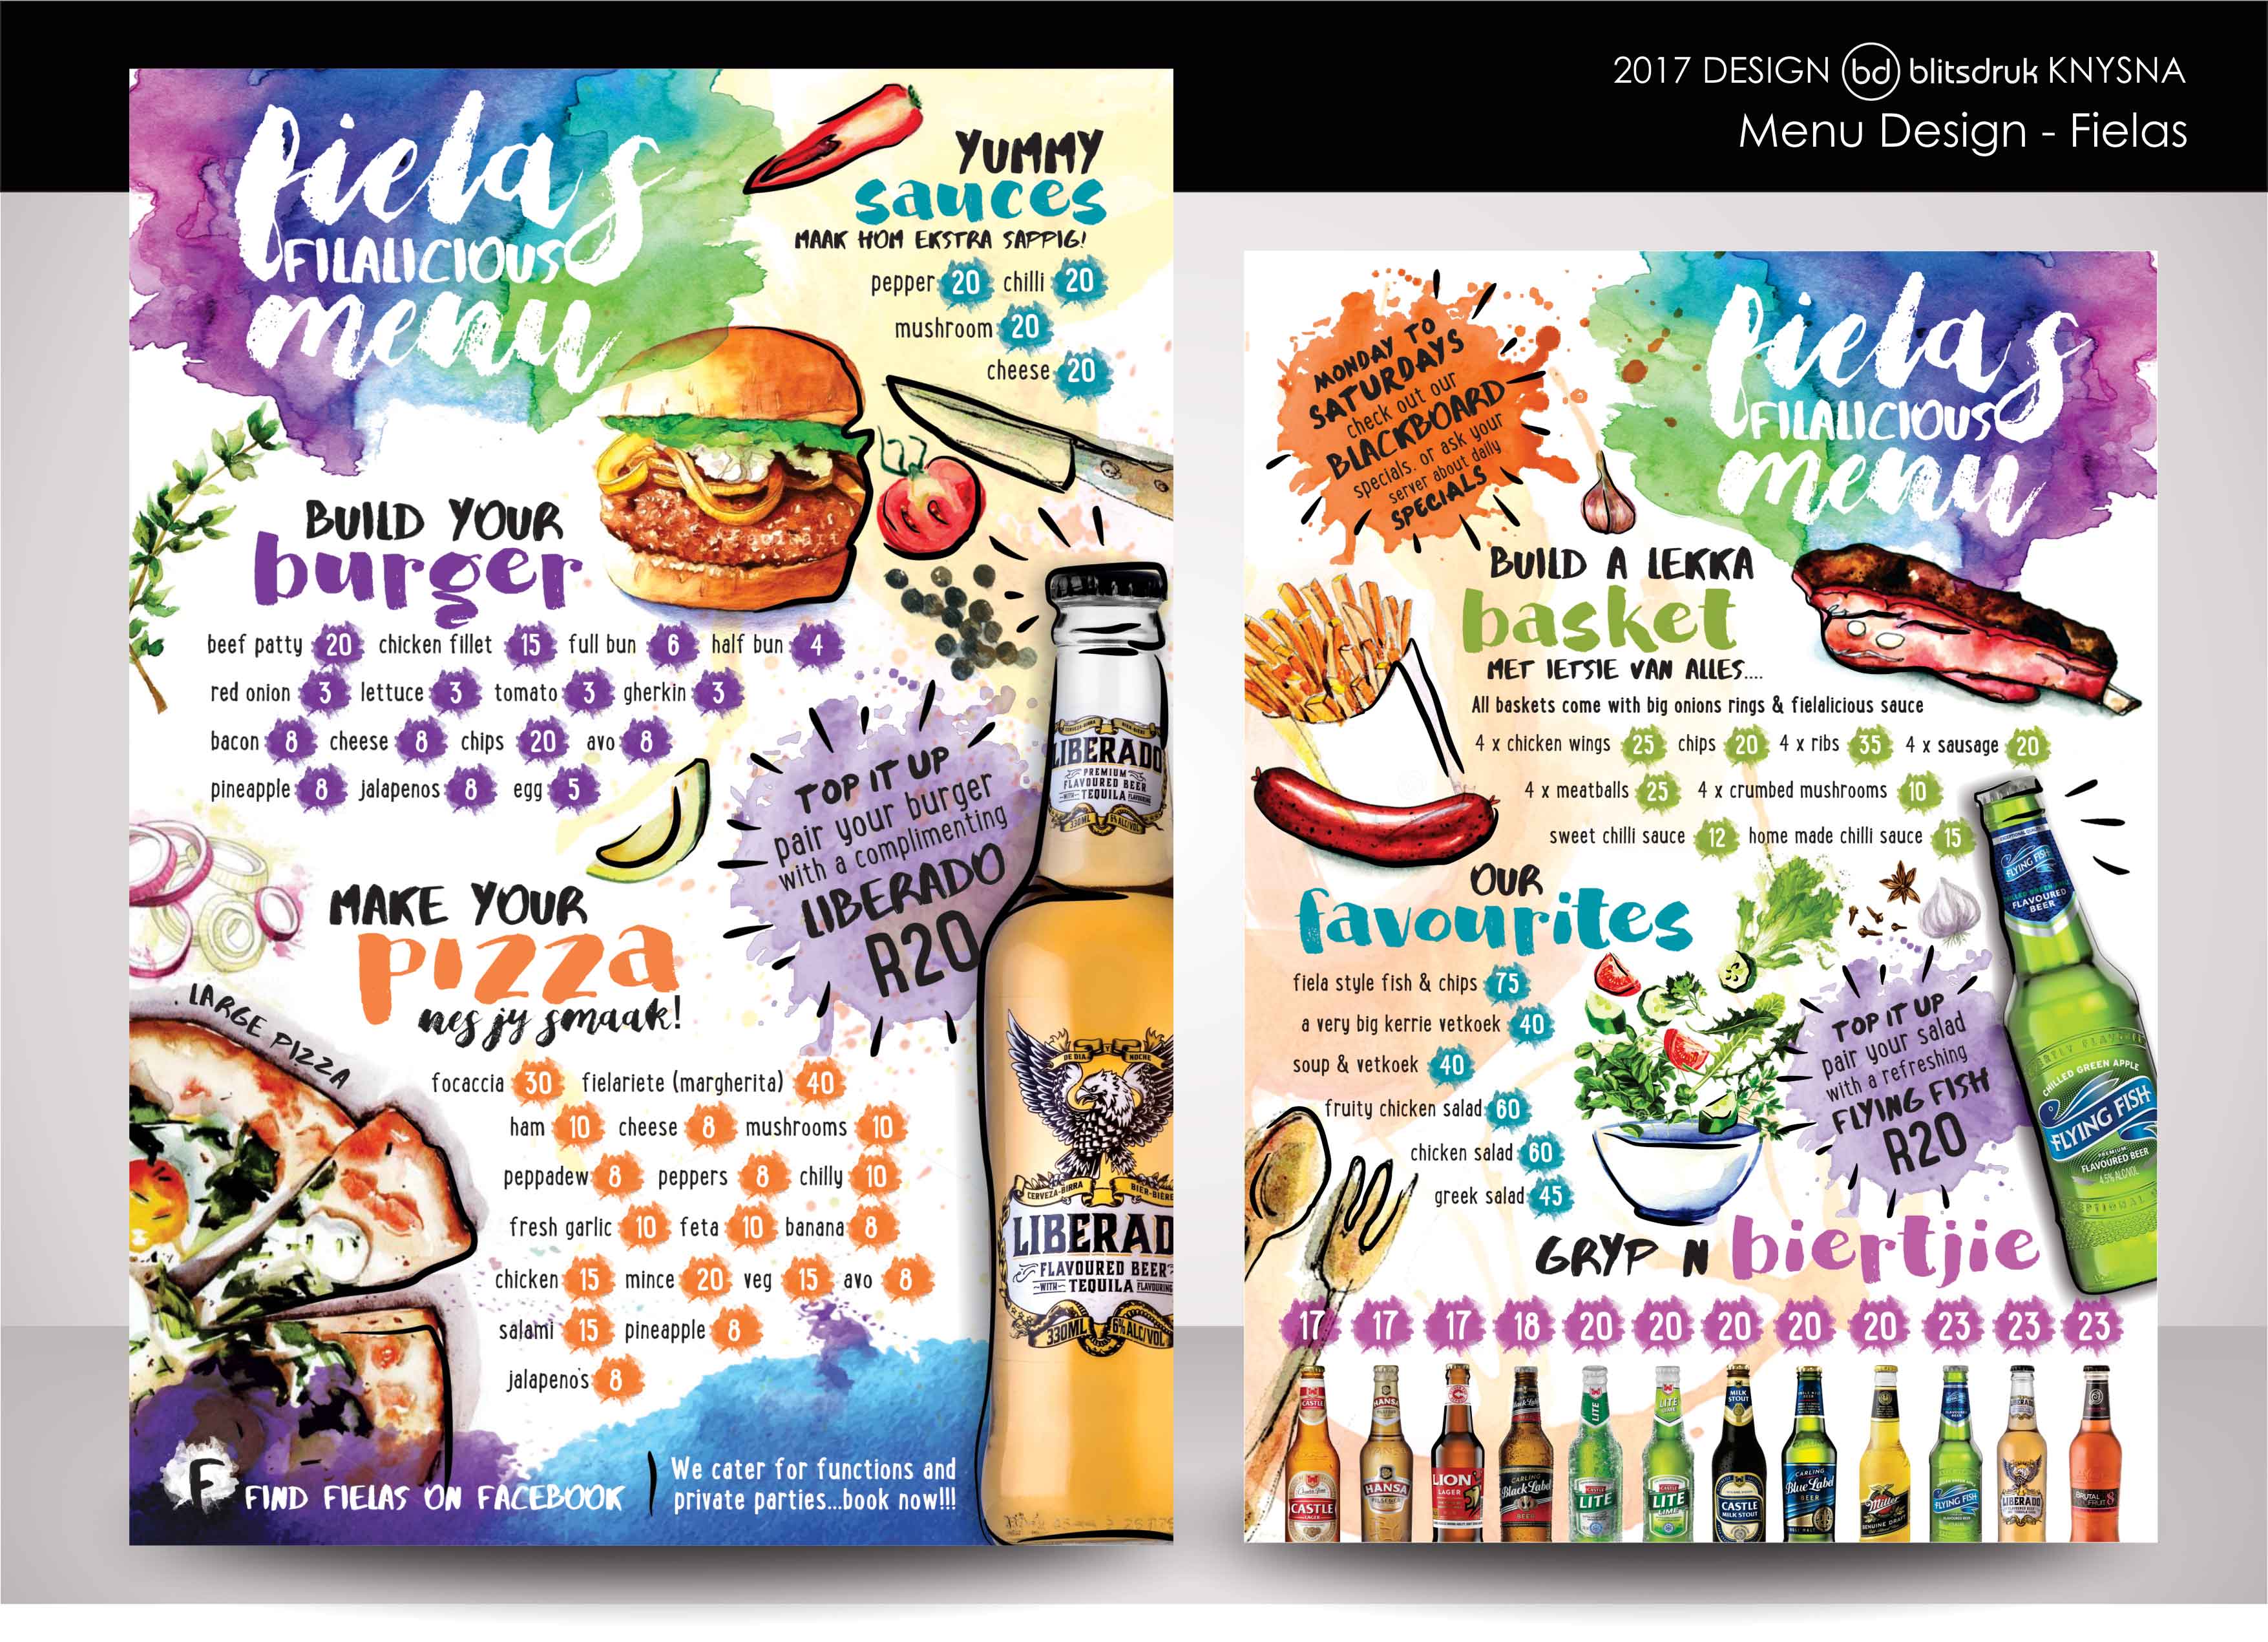 2017 DESIGN bd blitsdruk KNYSNA
Menu Design - Fielas
fielas
FILALICIOUS
menu
YUMMY
sauces
MAAK HOM EKSTRA SAPPIG!
pepper 20 chilli 20
mushroom 20
cheese 20
BUILD YOUR
burger
beef patty 20 chicken fillet 15 full bun 6 half bun 4
red onion 3 lettuce 3 tomato 3 gherkin 3
bacon 8 cheese 8 chips 20 avo 8
pineapple 8 jalapenos 8 egg 5
TOP IT UP
pair your burger
with a complimenting
LIBERADO
R20
LIBERADO
PREMIUM
FLAVOURED BEER
WITH TEQUILA FLAVOURING
330ML 6% ALC/VOL
MAKE YOUR
pizza
nes jy smaak!
LARGE PIZZA
focaccia 30 fielariete (margherita) 40
ham 10 cheese 8 mushrooms 10
peppadew 8 peppers 8 chilly 10
fresh garlic 10 feta 10 banana 8
chicken 15 mince 20 veg 15 avo 8
salami 15 pineapple 8
jalapeno's 8
DE DIA NOCHE
CERVEZA-BIRRA BIER-BIÈRE
LIBERAD
FLAVOURED BEER
WITH TEQUILA FLAVOURING
330ML 6% ALC/VOL
F FIND FIELAS ON FACEBOOK
We cater for functions and
private parties...book now!!!
MONDAY TO
SATURDAYS
check out our
BLACKBOARD
specials, or ask your
server about daily
SPECIALS
fielas
FILALICIOUS
menu
BUILD A LEKKA
basket
MET IETSIE VAN ALLES....
All baskets come with big onions rings & fielalicious sauce
4 x chicken wings 25 chips 20 4 x ribs 35 4 x sausage 20
4 x meatballs 25 4 x crumbed mushrooms 10
sweet chilli sauce 12 home made chilli sauce 15
OUR
favourites
fiela style fish & chips 75
a very big kerrie vetkoek 40
soup & vetkoek 40
fruity chicken salad 60
chicken salad 60
greek salad 45
TOP IT UP
pair your salad
with a refreshing
FLYING FISH
R20
FLYING FISH
FLAVOURED
BEER
CHILLED GREEN APPLE
FLYING FISH
PREMIUM
FLAVOURED BEER
4.5% ALC/VOL
GRYP N biertjie
17 17 17 18 20 20 20 20 20 23 23 23
CASTLE
LAGER
HANSA
PILSENER
LION
LAGER
CARLING
Black Label
BEER
CASTLE
LITE
CASTLE
LITE
LIME
MILK
STOUT
CASTLE
MILK STOUT
CARLING
Blue Label
BEER
Miller
GENUINE DRAFT
FLYING FISH
LIBERADO
BRUTAL
FRUIT